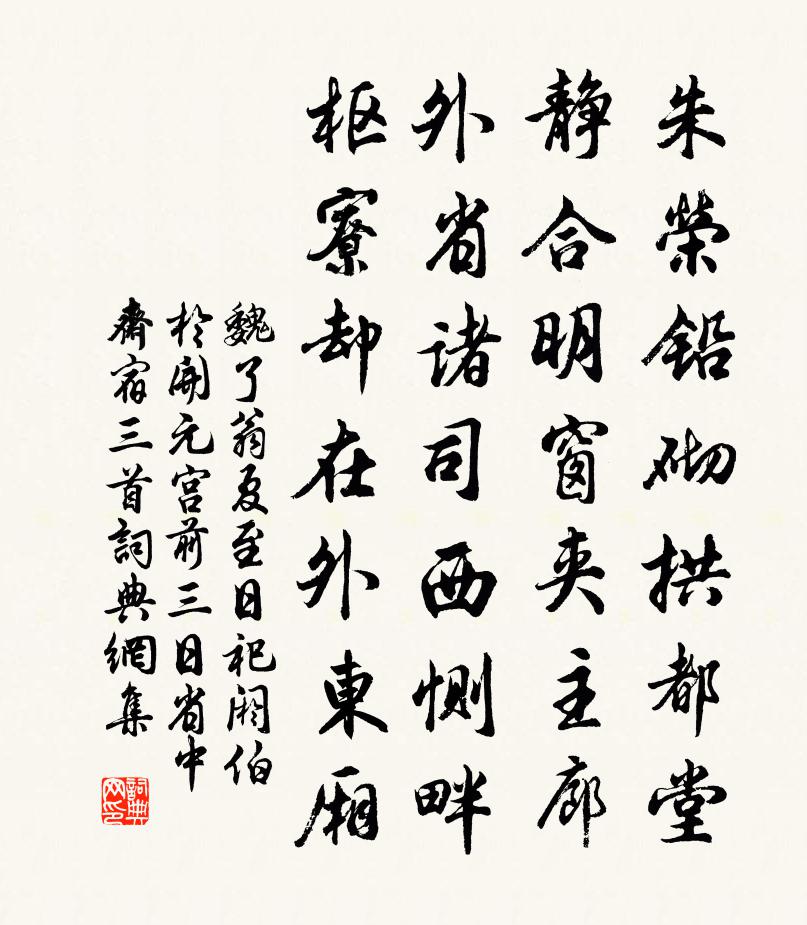 朱榮鉛砌拱都堂
静合明窗夾主廊
外省诸司西惻畔
枢寮却在外東厢
魏了翁夏至日祀阏伯
於開元宫前三日省中
齋宿三首詞典網集
詞典網印